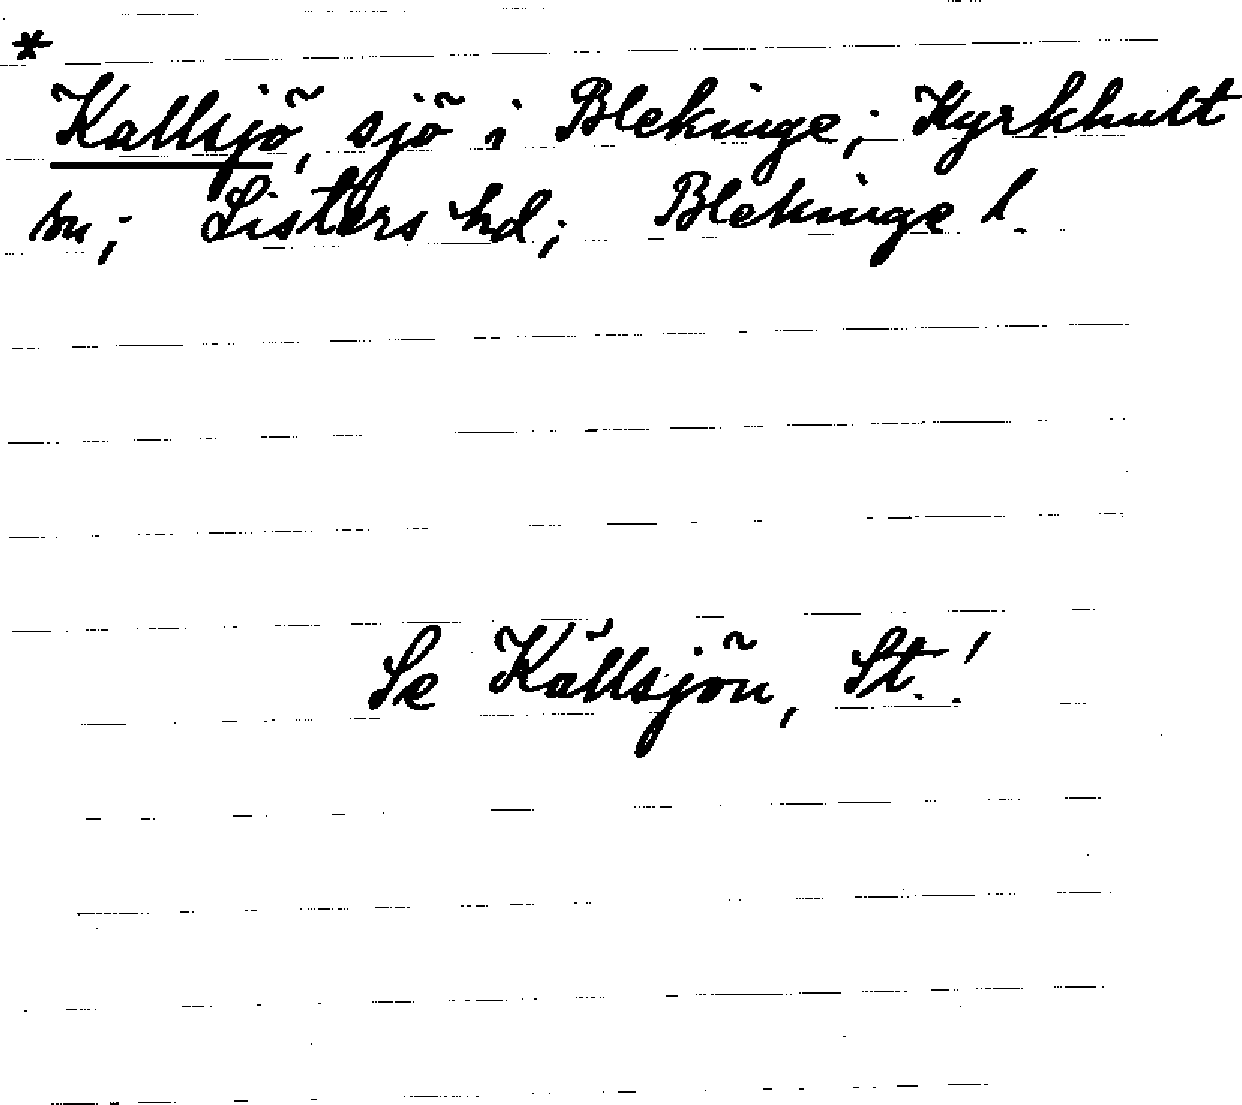 *
Kallsjö, sjö i Blekinge; Kyrkhult
sn; Listers hd; Blekinge l.
Se Kållsjön, St.!